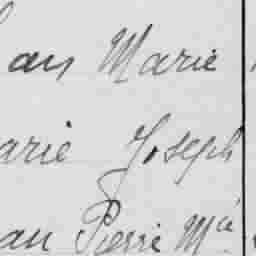 an Marie
arie Joseph
an Pierre Mie